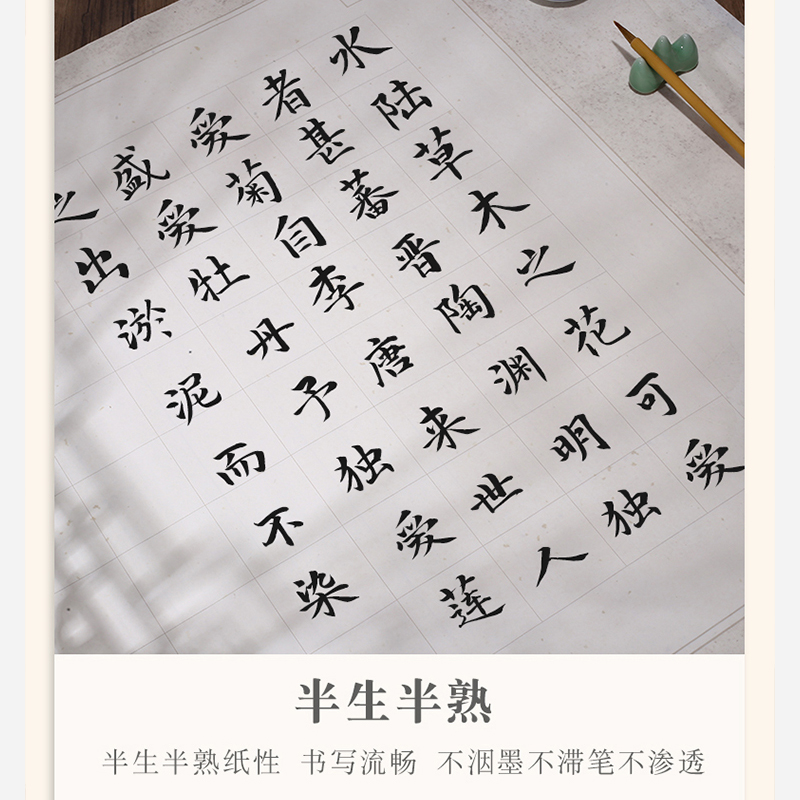 水陆草木之花可爱
者甚蕃晋陶渊明独
爱菊自李唐来世人
盛爱牡丹予独爱莲
之出淤泥而不染
半生半熟
半生半熟纸性 书写流畅 不洇墨不滞笔不渗透